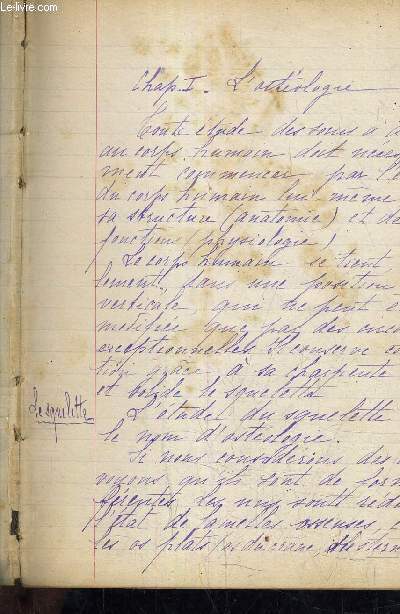 Chap. I. L'ostéologie
Toute étude des soins à d
au corps humain doit néces
ment commencer par l'é
du corps humain lui-même
sa structure (anatomie) et de
fonctions (physiologie)
Le corps humain se tient
lement dans une position
verticale qui ne peut ê
modifiée que par des mou
exceptionnelles. Il conserve ce
tion grâce à sa charpente
et solide le squelette
Le squelette
L'étude du squelette
le nom d'ostéologie.
Si nous considérons des
voyons qu'ils sont de for
férentes les uns sont rédu
l'état de lamelles osseuses, c
les os plats (os du crâne, stern
www.le-livre.com